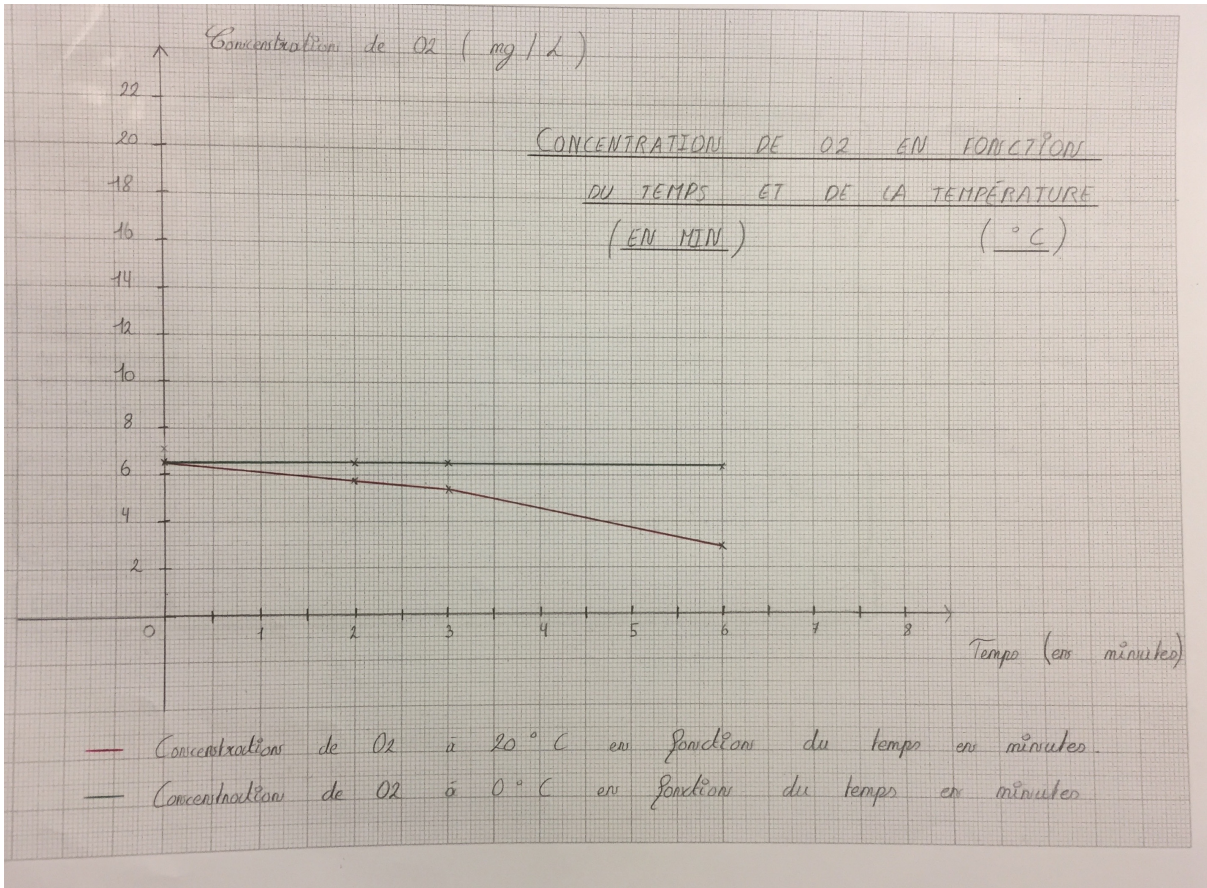 Concentration de O2 ( mg / L )
22
20
18
16
14
12
10
8
6
4
2
CONCENTRATION DE O2 EN FONCTION
DU TEMPS ET DE LA TEMPÉRATURE
( EN MIN ) ( ° C )
0 1 2 3 4 5 6 7 8
Temps (en minutes)
Concentration de O2 à 20 ° C en fonction du temps en minutes.
Concentration de O2 à 0 ° C en fonction du temps en minutes